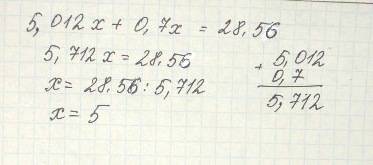 5,012x + 0,7x = 28,56
5,712x = 28,56
x = 28,56 : 5,712
x = 5
+ 5,012
0,7
5,712